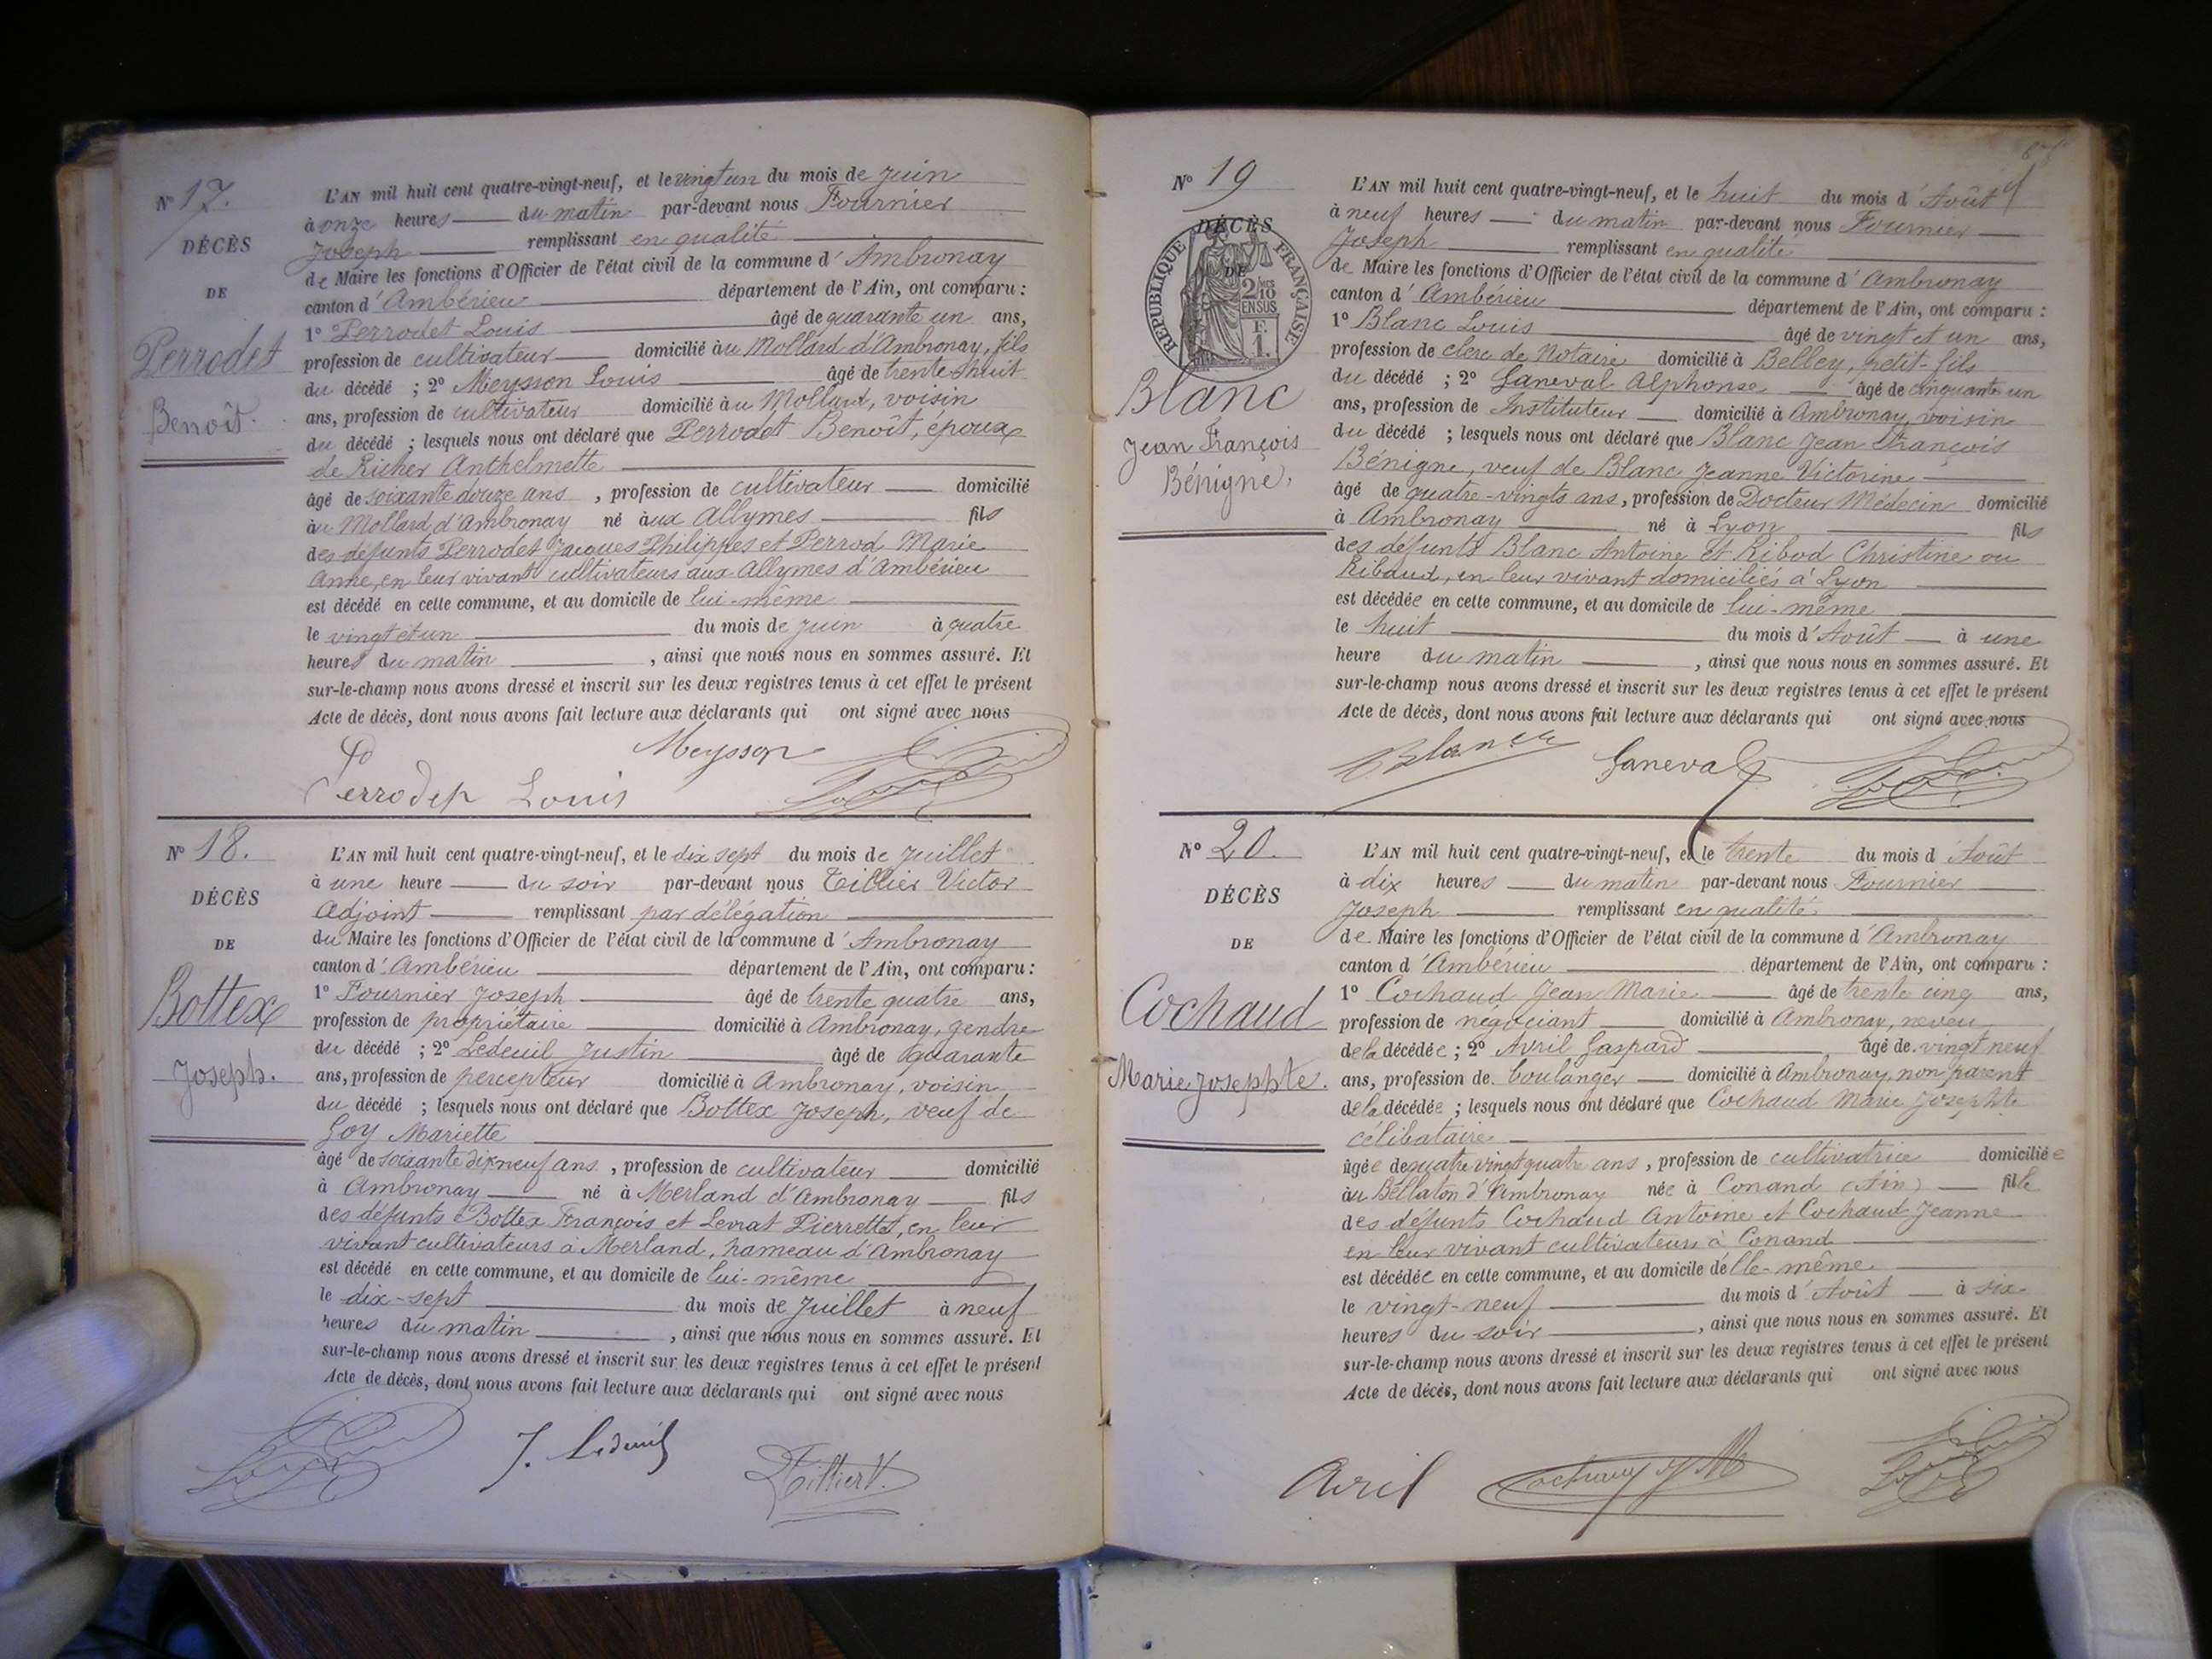 Nº 17.
DÉCÈS
DE
Perrodet
Benoît.
L'AN mil huit cent quatre-vingt-neuf, et le vingt un du mois de Juin
à onze heures du matin par-devant nous Fournier
Joseph remplissant en qualité
de Maire les fonctions d'Officier de l'état civil de la commune d'Ambronay
canton d'Ambérieu département de l'Ain, ont comparu :
1º Perrodet Louis âgé de quarante un ans,
profession de cultivateur domicilié au Mollard d'Ambronay, fils
du décédé ; 2º Meysson Louis âgé de trente huit
ans, profession de cultivateur domicilié au Mollard, voisin
du décédé ; lesquels nous ont déclaré que Perrodet Benoît, époux
de Richer Anthelmette
âgé de soixante douze ans, profession de cultivateur domicilié
au Mollard d'Ambronay né aux Allymes fils
des défunts Perrodet Jacques Philippes et Perrod Marie
Anne, en leur vivant cultivateurs aux Allymes d'Ambérieu
est décédé en cette commune, et au domicile de lui-même
le vingt et un du mois de Juin à quatre
heures du matin, ainsi que nous nous en sommes assuré. Et
sur-le-champ nous avons dressé et inscrit sur les deux registres tenus à cet effet le présent
Acte de décès, dont nous avons fait lecture aux déclarants qui ont signé avec nous
Meysson
Perrodet Louis
Nº 18.
DÉCÈS
DE
Bottex
Joseph.
L'AN mil huit cent quatre-vingt-neuf, et le dix sept du mois de Juillet
à une heure du soir par-devant nous Tillier Victor
Adjoint remplissant par délégation
du Maire les fonctions d'Officier de l'état civil de la commune d'Ambronay
canton d'Ambérieu département de l'Ain, ont comparu :
1º Fournier Joseph âgé de trente quatre ans,
profession de propriétaire domicilié à Ambronay, gendre
du décédé ; 2º Ledeuil Justin âgé de quarante
ans, profession de percepteur domicilié à Ambronay, voisin
du décédé ; lesquels nous ont déclaré que Bottex Joseph, veuf de
Goy Mariette
âgé de soixante dix neuf ans, profession de cultivateur domicilié
à Ambronay né à Merland d'Ambronay fils
des défunts Bottex François et Levrat Pierrette, en leur
vivant cultivateurs à Merland, hameau d'Ambronay
est décédé en cette commune, et au domicile de lui-même
le dix-sept du mois de Juillet à neuf
heures du matin, ainsi que nous nous en sommes assuré. Et
sur-le-champ nous avons dressé et inscrit sur les deux registres tenus à cet effet le présent
Acte de décès, dont nous avons fait lecture aux déclarants qui ont signé avec nous
J. Ledeuil
Tillier V.
Nº 19
DÉCÈS
DE
REPUBLIQUE FRANÇAISE
2 10
EN SUS
F.
1.
Blanc
Jean François
Bénigne,
L'AN mil huit cent quatre-vingt-neuf, et le huit du mois d'Août
à neuf heures du matin par-devant nous Fournier
Joseph remplissant en qualité
de Maire les fonctions d'Officier de l'état civil de la commune d'Ambronay
canton d'Ambérieu département de l'Ain, ont comparu :
1º Blanc Louis âgé de vingt et un ans,
profession de clerc de Notaire domicilié à Belley, petit-fils
du décédé ; 2º Ganeval Alphonse âgé de cinquante un
ans, profession de Instituteur domicilié à Ambronay, voisin
du décédé ; lesquels nous ont déclaré que Blanc Jean François
Bénigne, veuf de Blanc Jeanne Victorine
âgé de quatre-vingts ans, profession de Docteur Médecin domicilié
à Ambronay né à Lyon fils
des défunts Blanc Antoine et Ribod Christine ou
Ribaud, en leur vivant domiciliés à Lyon
est décédée en cette commune, et au domicile de lui-même
le huit du mois d'Août à une
heure du matin, ainsi que nous nous en sommes assuré. Et
sur-le-champ nous avons dressé et inscrit sur les deux registres tenus à cet effet le présent
Acte de décès, dont nous avons fait lecture aux déclarants qui ont signé avec nous
Blanc Ganeval
Nº 20.
DÉCÈS
DE
Cochaud
Marie Josephte.
L'AN mil huit cent quatre-vingt-neuf, et le trente du mois d'Août
à dix heures du matin par-devant nous Fournier
Joseph remplissant en qualité
de Maire les fonctions d'Officier de l'état civil de la commune d'Ambronay
canton d'Ambérieu département de l'Ain, ont comparu :
1º Cochaud Jean Marie âgé de trente cinq ans,
profession de négociant domicilié à Ambronay, neveu
de la décédée ; 2º Avril Gaspard âgé de vingt neuf
ans, profession de boulanger domicilié à Ambronay, non parent
de la décédée ; lesquels nous ont déclaré que Cochaud Marie Josephte
célibataire
âgée de quatre vingt quatre ans, profession de cultivatrice domiciliée
au Bellaton d'Ambronay née à Conand (Ain) fille
des défunts Cochaud Antoine et Cochaud Jeanne
en leur vivant cultivateurs à Conand
est décédée en cette commune, et au domicile d'elle-même
le vingt-neuf du mois d'Août à six
heures du soir, ainsi que nous nous en sommes assuré. Et
sur-le-champ nous avons dressé et inscrit sur les deux registres tenus à cet effet le présent
Acte de décès, dont nous avons fait lecture aux déclarants qui ont signé avec nous
Avril